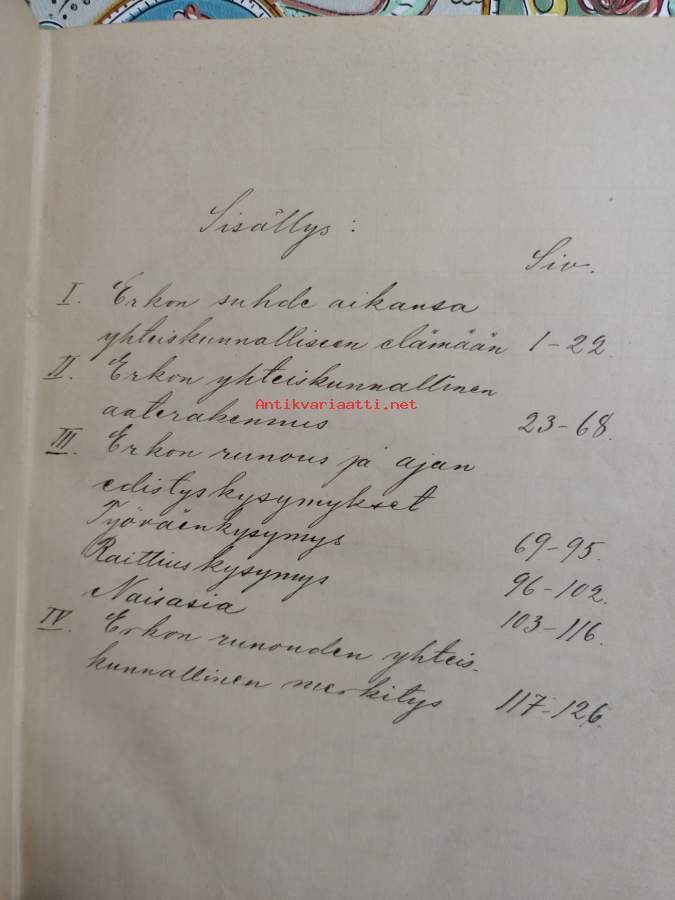 Sisällys:
Siv.
I. Erkon suhde aikansa
yhteiskunnalliseen elämään 1-22.
II. Erkon yhteiskunnallinen
Antikvariaatti.net
aaterakennus 23-68.
III. Erkon runous ja ajan
edistyskysymykset
Työväenkysymys 69-95.
Raittiuskysymys 96-102.
Naisasia 103-116.
IV. Erkon runouden yhteis-
kunnallinen merkitys 117-126.